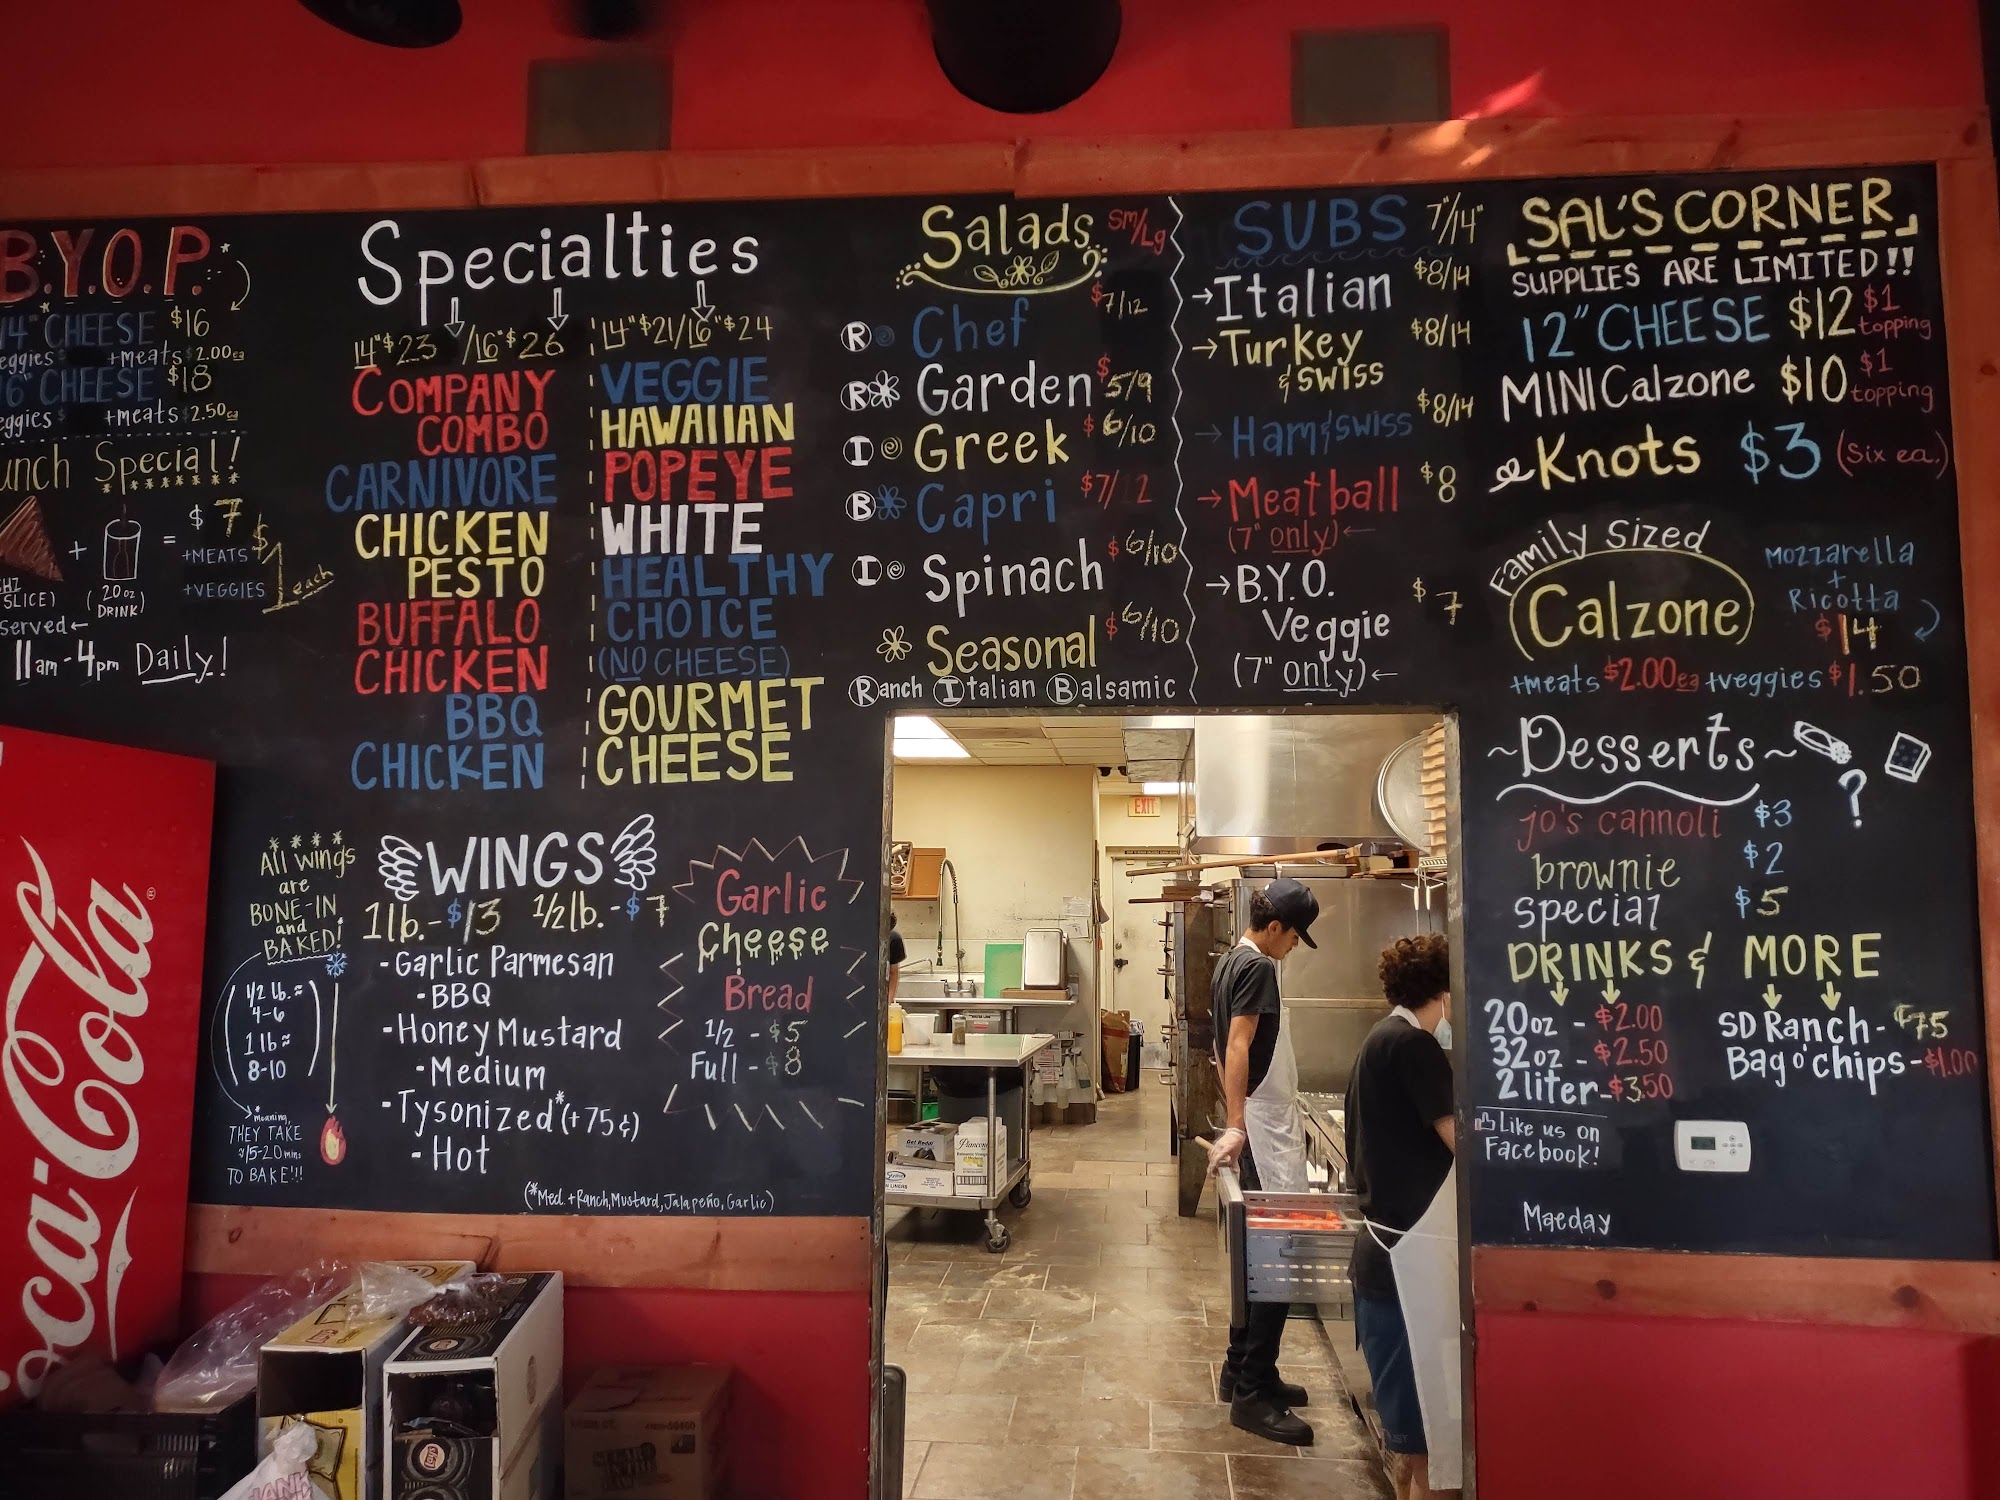 B.Y.O.P.
14" CHEESE $16
eggies $ +meats $2.00ea
6" CHEESE $18
eggies $ +meats $2.50ea
unch Special!
+ = $7
+MEATS $1 each
+VEGGIES
SLICE) (20oz DRINK)
served←
11am-4pm Daily!
Specialties
14" $23 /16" $26
COMPANY
COMBO
CARNIVORE
CHICKEN
PESTO
BUFFALO
CHICKEN
BBQ
CHICKEN
14" $21/16" $24
VEGGIE
HAWAIIAN
POPEYE
WHITE
HEALTHY
CHOICE
(NO CHEESE)
GOURMET
CHEESE
All wings
are
BONE-IN
and
BAKED!
1/2 lb. ≈
4-6
1 lb ≈
8-10
*meaning,
THEY TAKE
≈15-20 mins
TO BAKE!!!
WINGS
1lb. - $13 1/2lb. - $7
-Garlic Parmesan
-BBQ
-Honey Mustard
-Medium
-Tysonized* (+75¢)
-Hot
(*Med. + Ranch, Mustard, Jalapeño, Garlic)
Garlic
Cheese
Bread
1/2 - $5
Full - $8
Salads Sm/Lg
R Chef $7/12
R Garden $5/9
I Greek $6/10
B Capri $7/12
I Spinach $6/10
Seasonal $6/10
Ranch Italian Balsamic
SUBS 7"/14"
→Italian $8/14
→Turkey $8/14
& swiss
→Ham & swiss $8/14
→Meatball $8
(7" only)←
→B.Y.O. $7
Veggie
(7" only)←
SAL'S CORNER
SUPPLIES ARE LIMITED!!
12" CHEESE $12 $1 topping
MINI Calzone $10 $1 topping
Knots $3 (six ea.)
Family Sized
Calzone
Mozzarella
+
Ricotta
$14
+meats $2.00ea +veggies $1.50
~Desserts~
?
jo's cannoli $3
brownie $2
special $5
DRINKS & MORE
20oz - $2.00
32oz - $2.50
2liter - $3.50
SD Ranch - ¢75
Bag o' chips - $1.00
Like us on
Facebook!
Maeday
EXIT
Coca-Cola